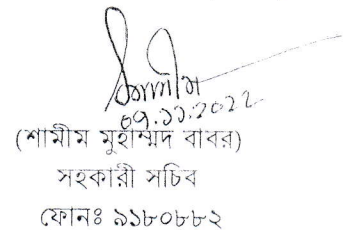 ০৭.১১.২০২২
(শামীম মুহাম্মদ বাবর)
সহকারী সচিব
ফোনঃ ৯১৮০৮৮২